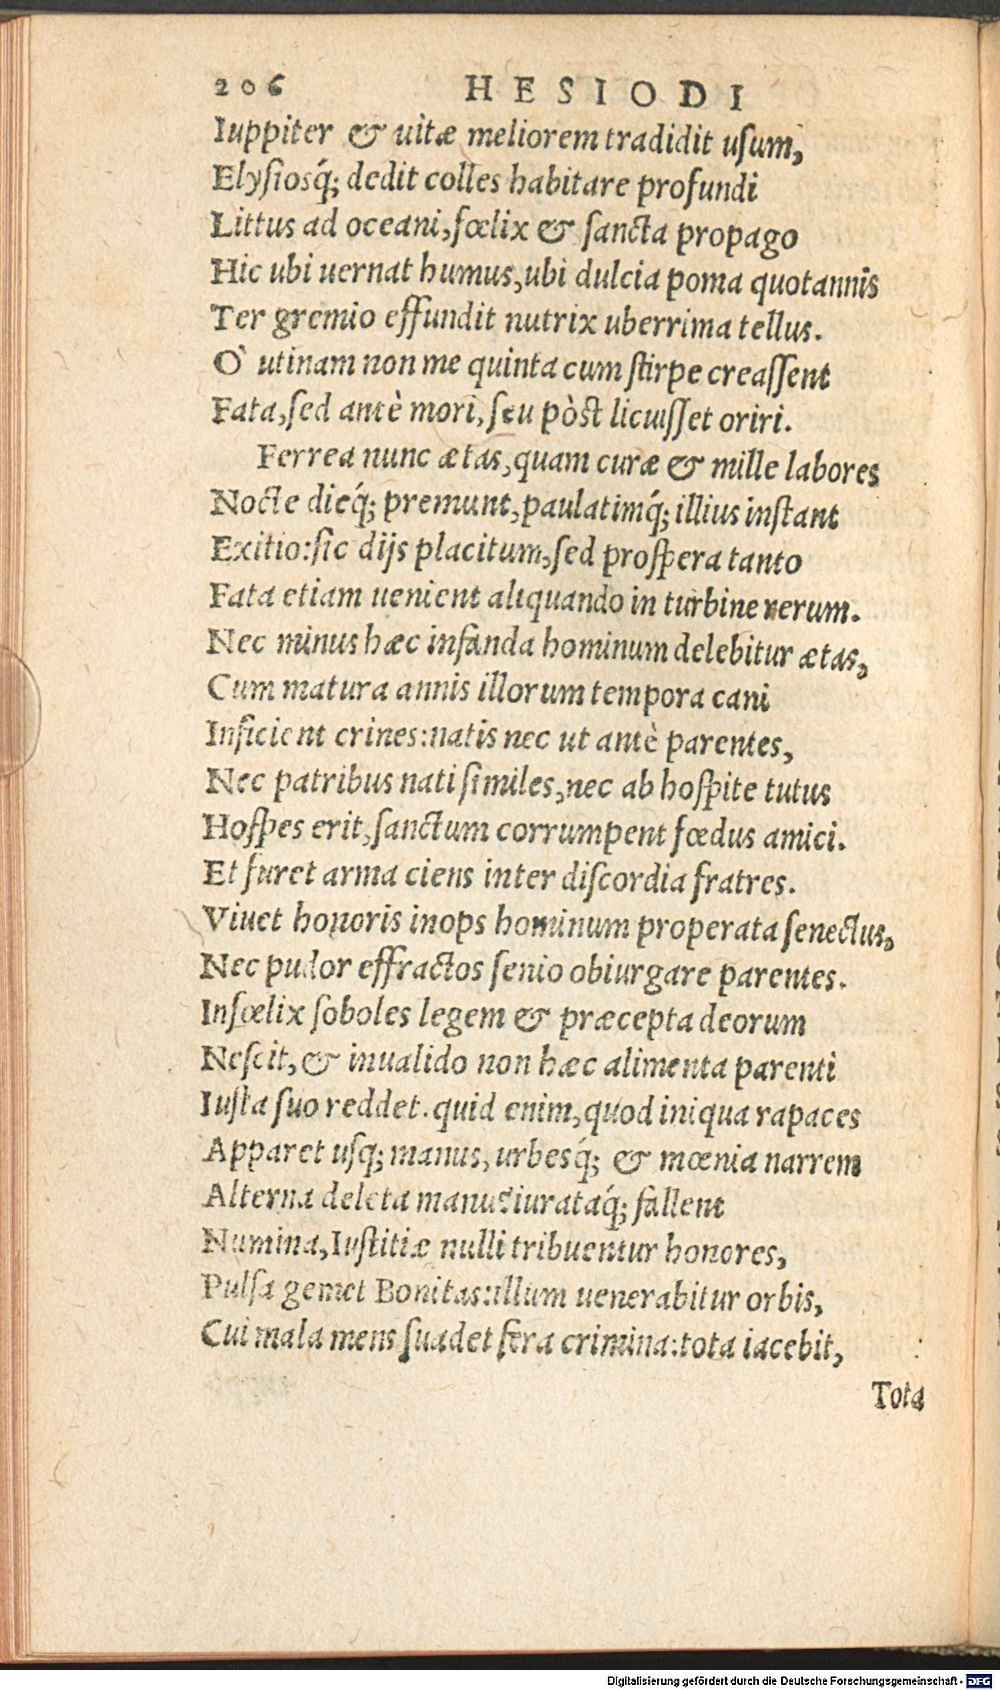 206 HESIODI
Iuppiter & uitæ meliorem tradidit usum,
Elysiosq́; dedit colles habitare profundi
Littus ad oceani, fœlix & sancta propago
Hic ubi uernat humus, ubi dulcia poma quotannis
Ter gremio effundit nutrix uberrima tellus.
Ò utinam non me quinta cum stirpe creassent
Fata, sed antè mori, seu pòst licuisset oriri.
Ferrea nunc ætas, quam curæ & mille labores
Nocte dieq́; premunt, paulatimq́; illius instant
Exitio: sic dijs placitum, sed prospera tanto
Fata etiam uenient aliquando in turbine rerum.
Nec minus hæc infanda hominum delebitur ætas,
Cum matura annis illorum tempora cani
Inficient crines: natis nec ut antè parentes,
Nec patribus nati similes, nec ab hospite tutus
Hospes erit, sanctum corrumpent fœdus amici.
Et furet arma ciens inter discordia fratres.
Viuet honoris inops hominum properata senectus,
Nec pudor effractos senio obiurgare parentes.
Infœlix soboles legem & præcepta deorum
Nescit, & inualido non hæc alimenta parenti
Iusta suo reddet. quid enim, quod iniqua rapaces
Apparet usq; manus, urbesq́; & mœnia narrem
Alterna deleta manu? iurataq́; fallent
Numina, Iustitiæ nulli tribuentur honores,
Pulsa gemet Bonitas: illum uenerabitur orbis,
Cui mala mens suadet fera crimina: tota iacebit,
Tota
Digitalisierung gefördert durch die Deutsche Forschungsgemeinschaft - DFG